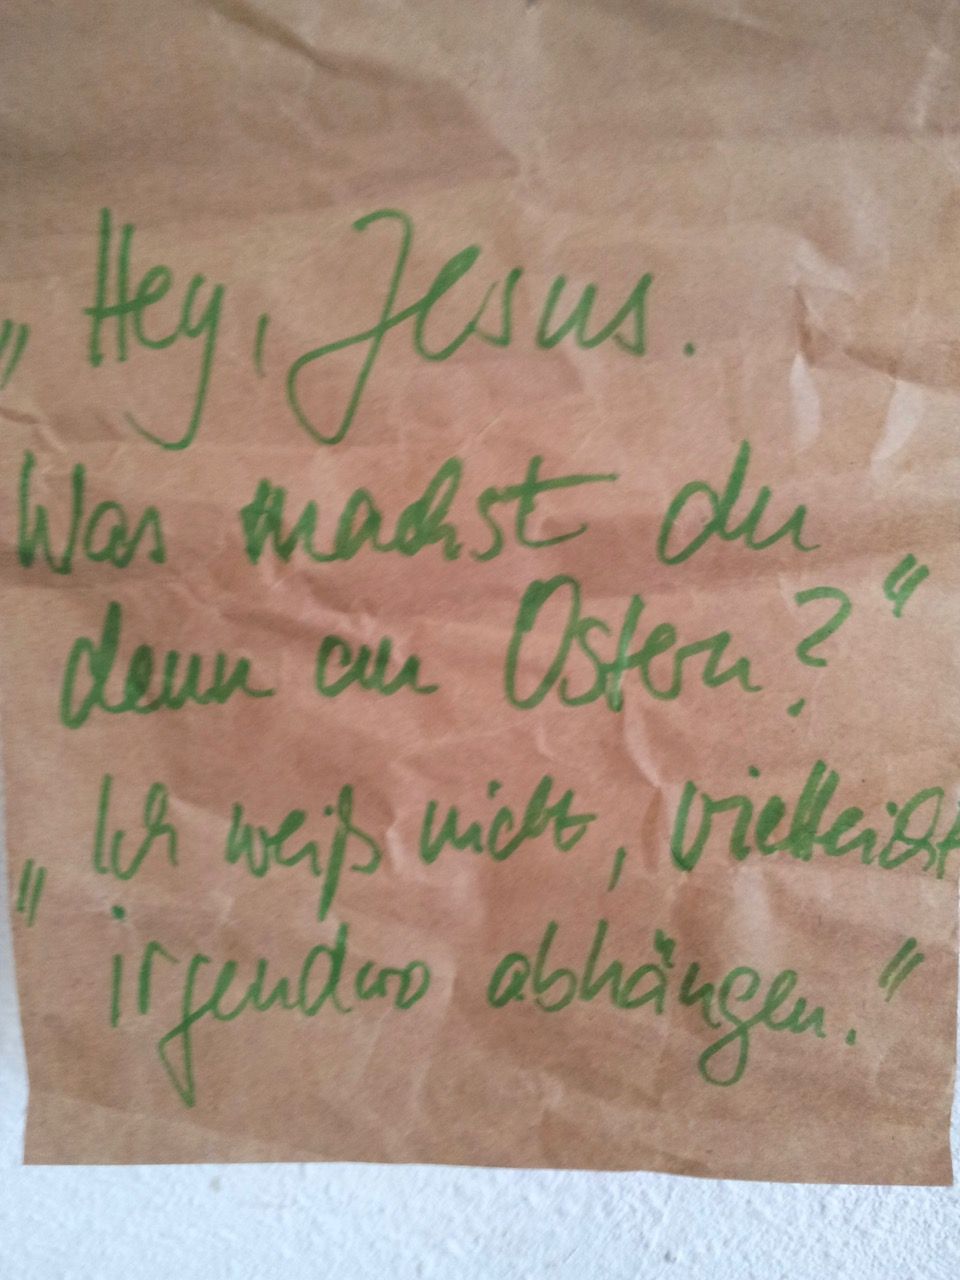 „Hey, Jesus.
Was machst du
denn an Ostern?“
„Ich weiß nicht, vielleicht
irgendwo abhängen.“